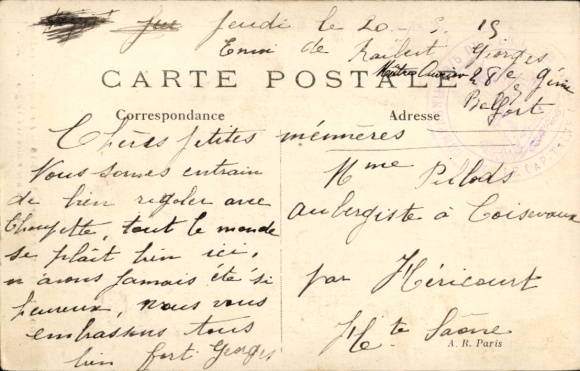 Jeudi le 20 - 5. 15
Envoi de Raibert Georges
CARTE POSTALE
Maître Ouvrier 28e Génie
Belfort
Correspondance
Adresse
Chères petites mémères
Nous sommes entrain
de bien rigoler avec
Choupette, tout le monde
se plaît bien ici,
n'avons jamais été si
heureux, nous vous
embrassons tous
bien fort Georges
Mme Pillods
aubergiste à Coisevaux
par Héricourt
Hte Saône
A. R. Paris